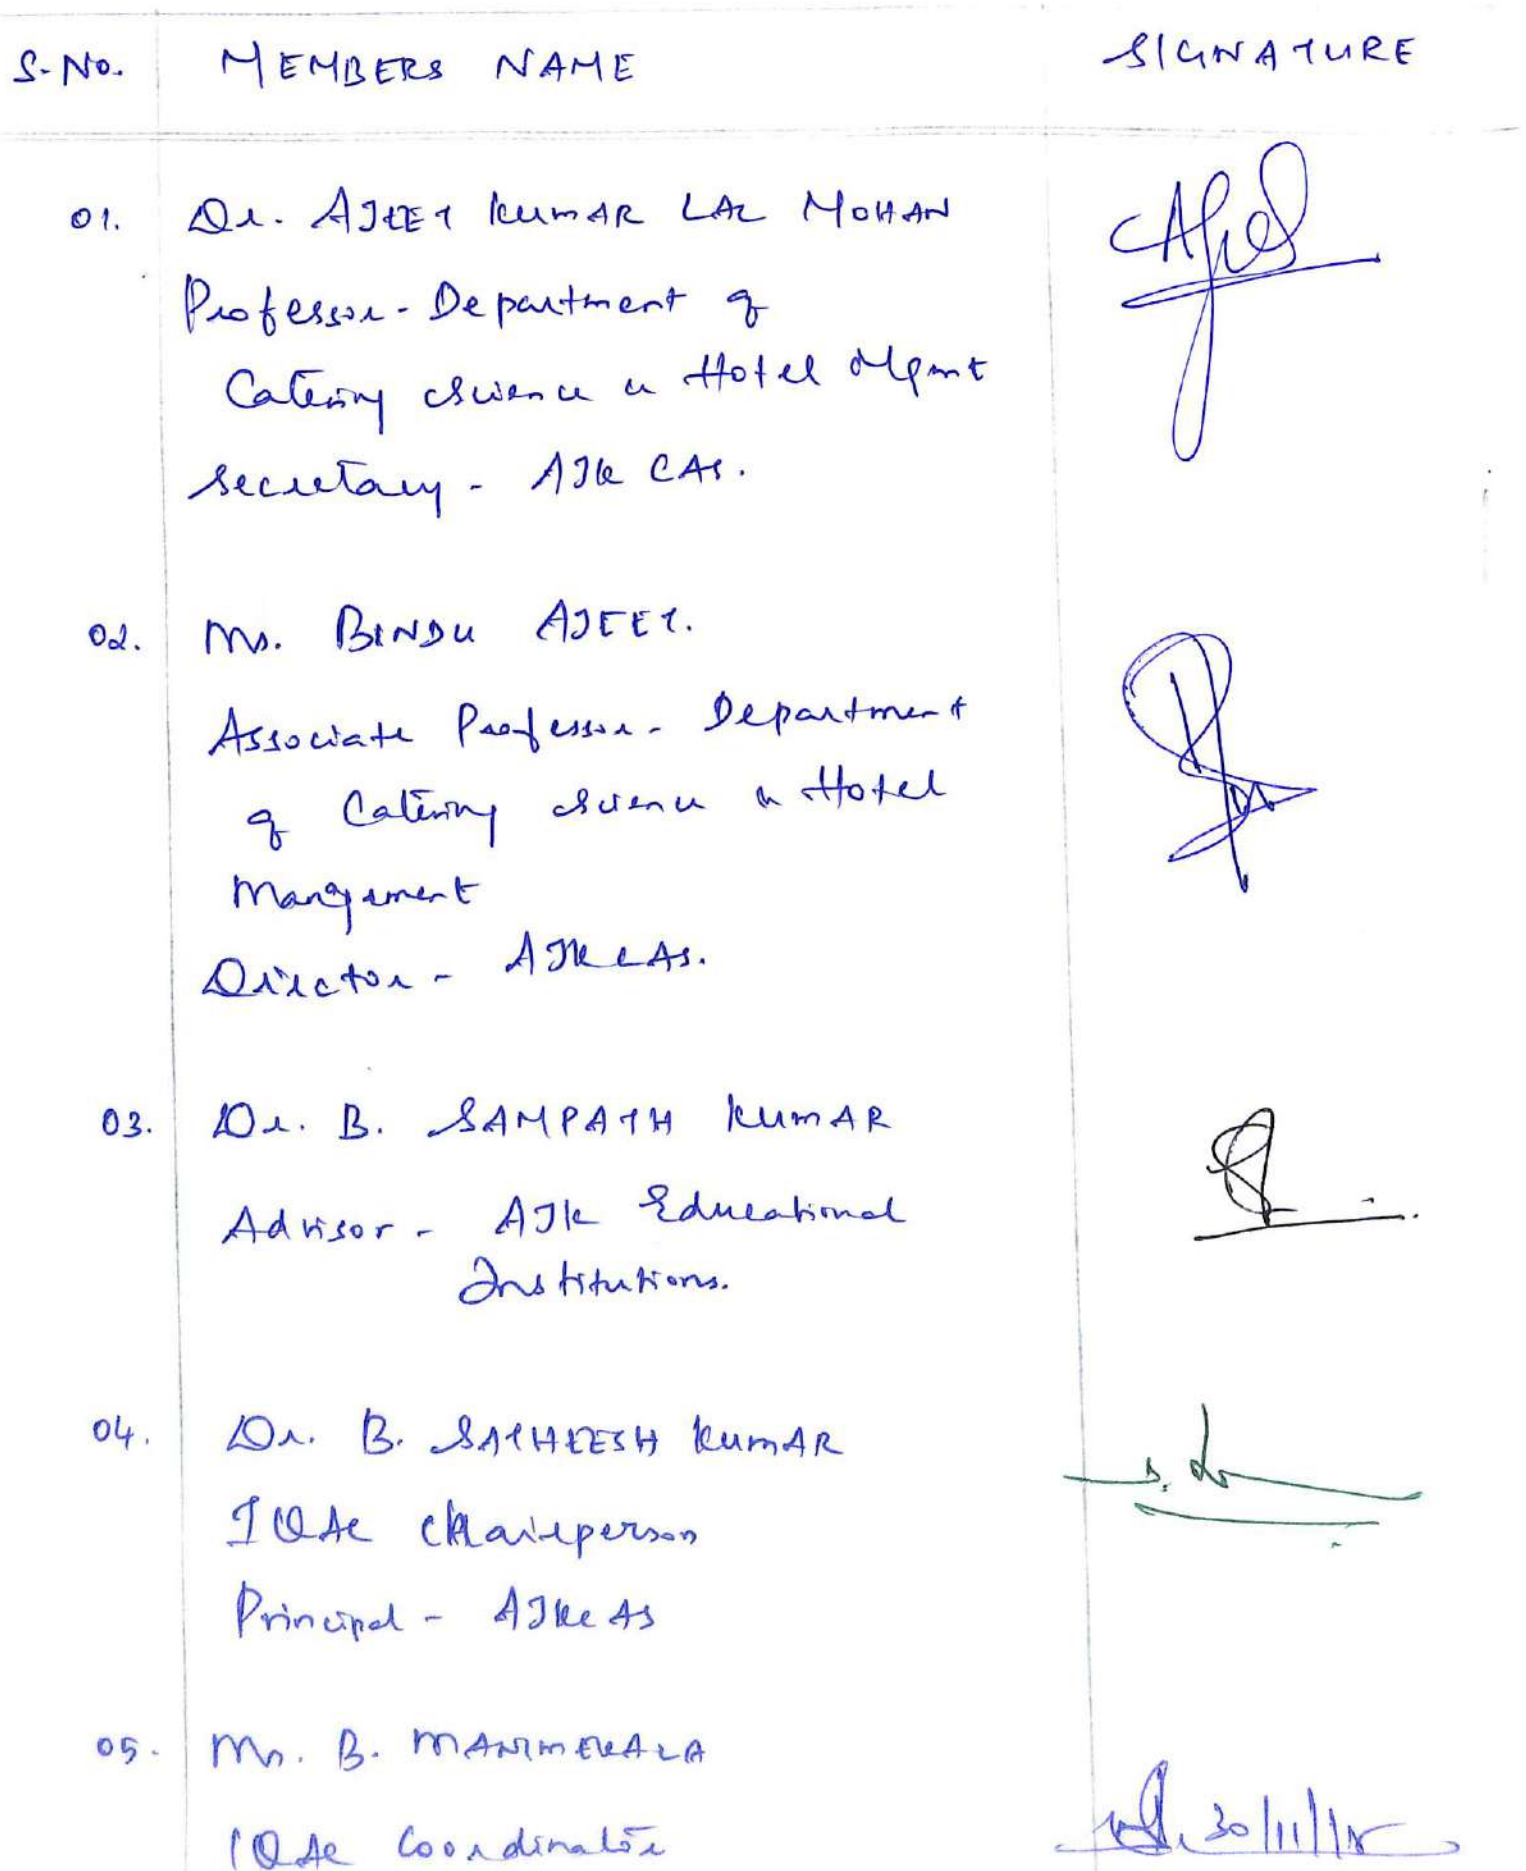 S. No. MEMBERS NAME SIGNATURE
01. Dr. AJEET KUMAR LAL MOHAN
Professor - Department of
Catering Science & Hotel Mgmt
Secretary - AJK CAS.
02. Ms. BINDU AJEET.
Associate Professor - Department
of Catering Science & Hotel
Mangement
Director - AJKCAS.
03. Dr. B. SAMPATH KUMAR
Advisor - AJK Educational
Institutions.
04. Dr. B. SATHEESH KUMAR
IQAC Chairperson
Principal - AJKCAS
05. B. MANIMEKALA
30/11/
IQAC Coordinator